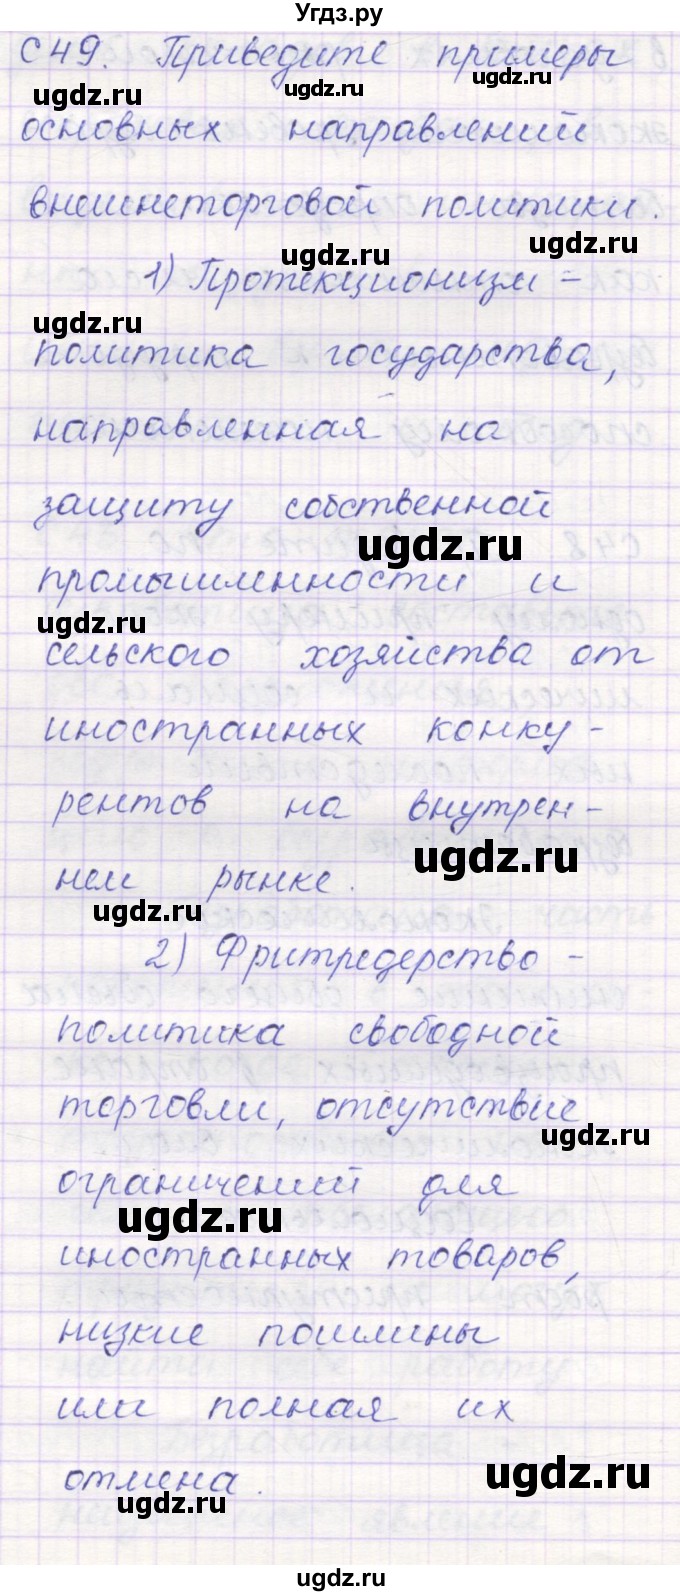 Угдз.ру
С49. Приведите примеры
ugdz.ru ugdz.ru ugdz.ru
основных направлений
внешнеторговой политики.
ugdz.ru ugdz.ru
1) Протекционизм -
ugdz.ru
политика государства,
направленная на
защиту собственной
ugdz.ru
промышленности и
ugdz.ru
сельского хозяйства от
иностранных конку-
рентов на внутрен-
ugdz.ru
нем рынке.
ugdz.ru
2) Фритредерство -
политика свободной
торговли, отсутствие
ugdz.ru
ограничений для
ugdz.ru
иностранных товаров,
низкие пошлины
или полная их
отмена.
ugdz.ru
ugdz.ru
ugdz.ru